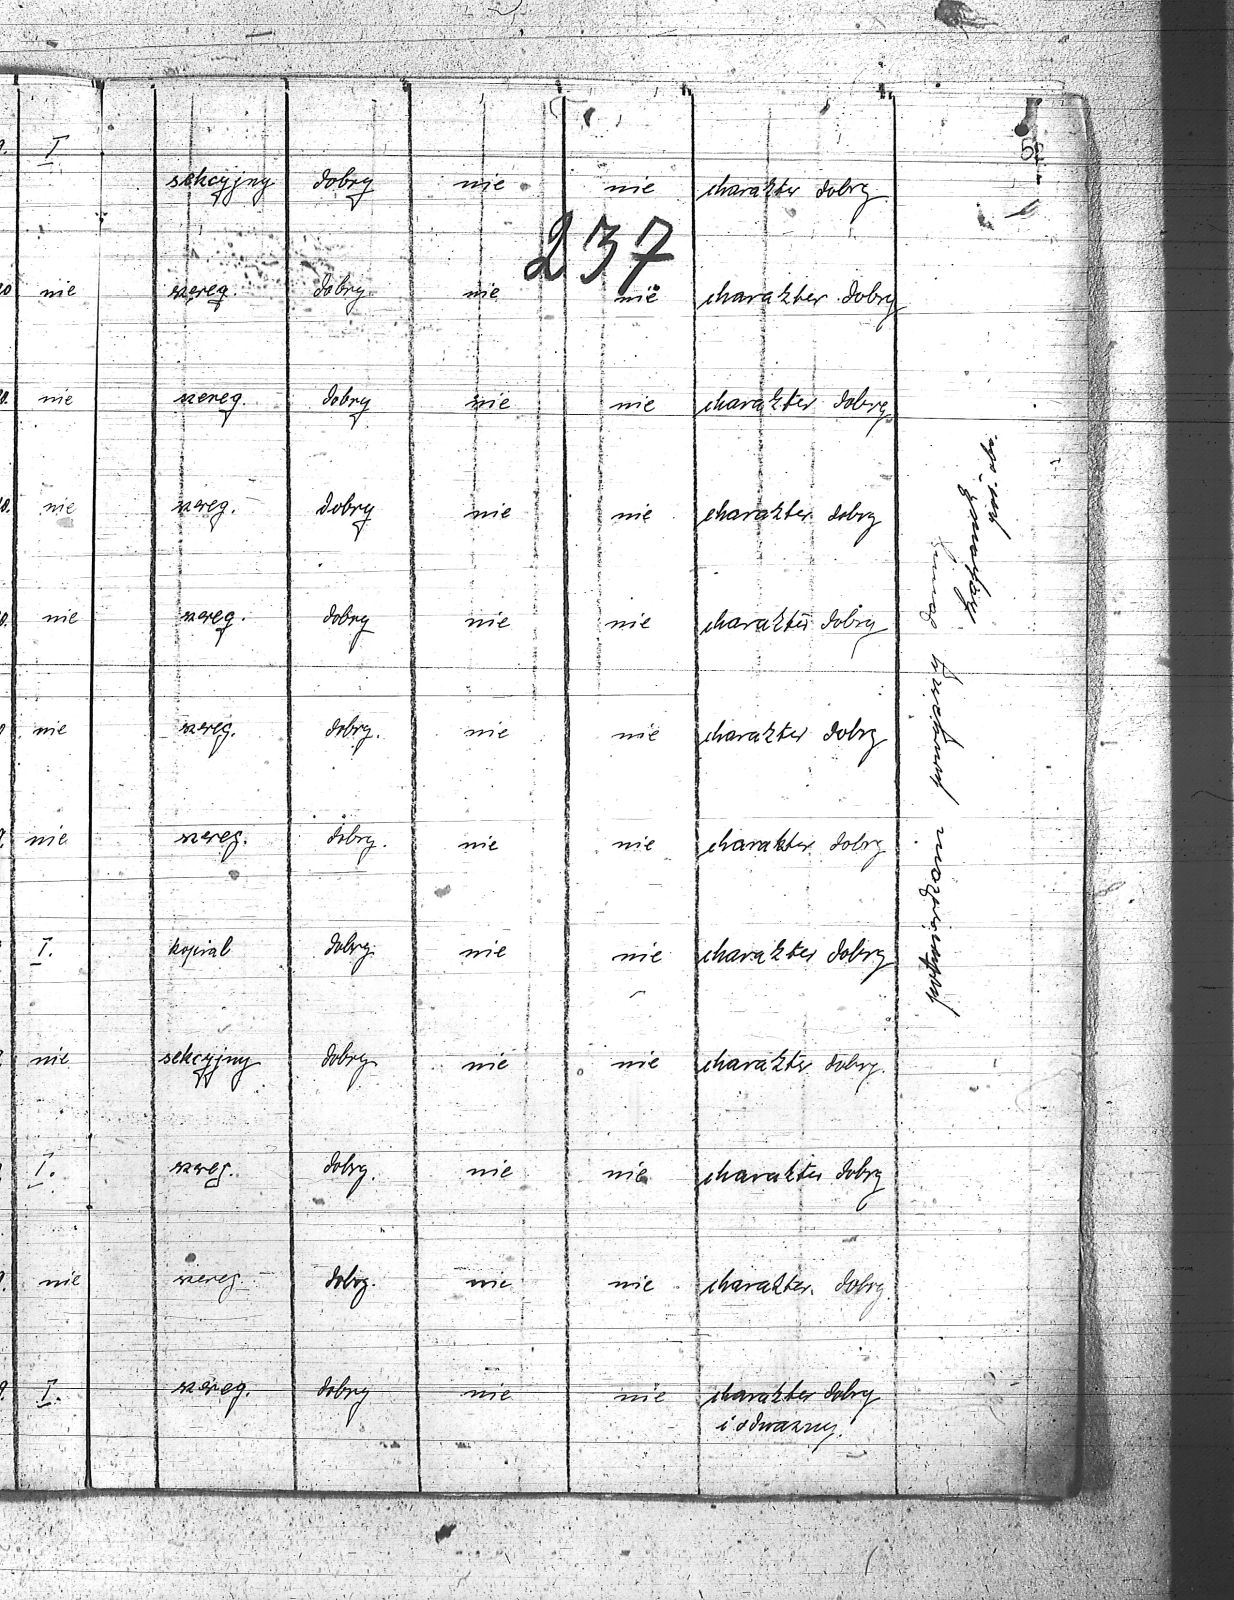 I sekcyjny dobry nie nie charakter dobry
237
nie szereg. dobry. nie nie charakter dobry
nie szereg. dobry nie nie charakter dobry.
nie szereg. dobry nie nie charakter dobry
nie szereg. dobry nie nie charakter dobry
nie szereg. dobry. nie nie charakter dobry
nie szereg. dobry. nie nie charakter dobry
I. kapral dobry. nie nie charakter dobry
nie sekcyjny dobry. nie nie charakter dobry.
I. szereg. dobry. nie nie charakter dobry
nie szereg. dobry. nie nie charakter dobry.
I. szereg. dobry nie nie charakter dobry
i odważny.
potwierdzam powyższy